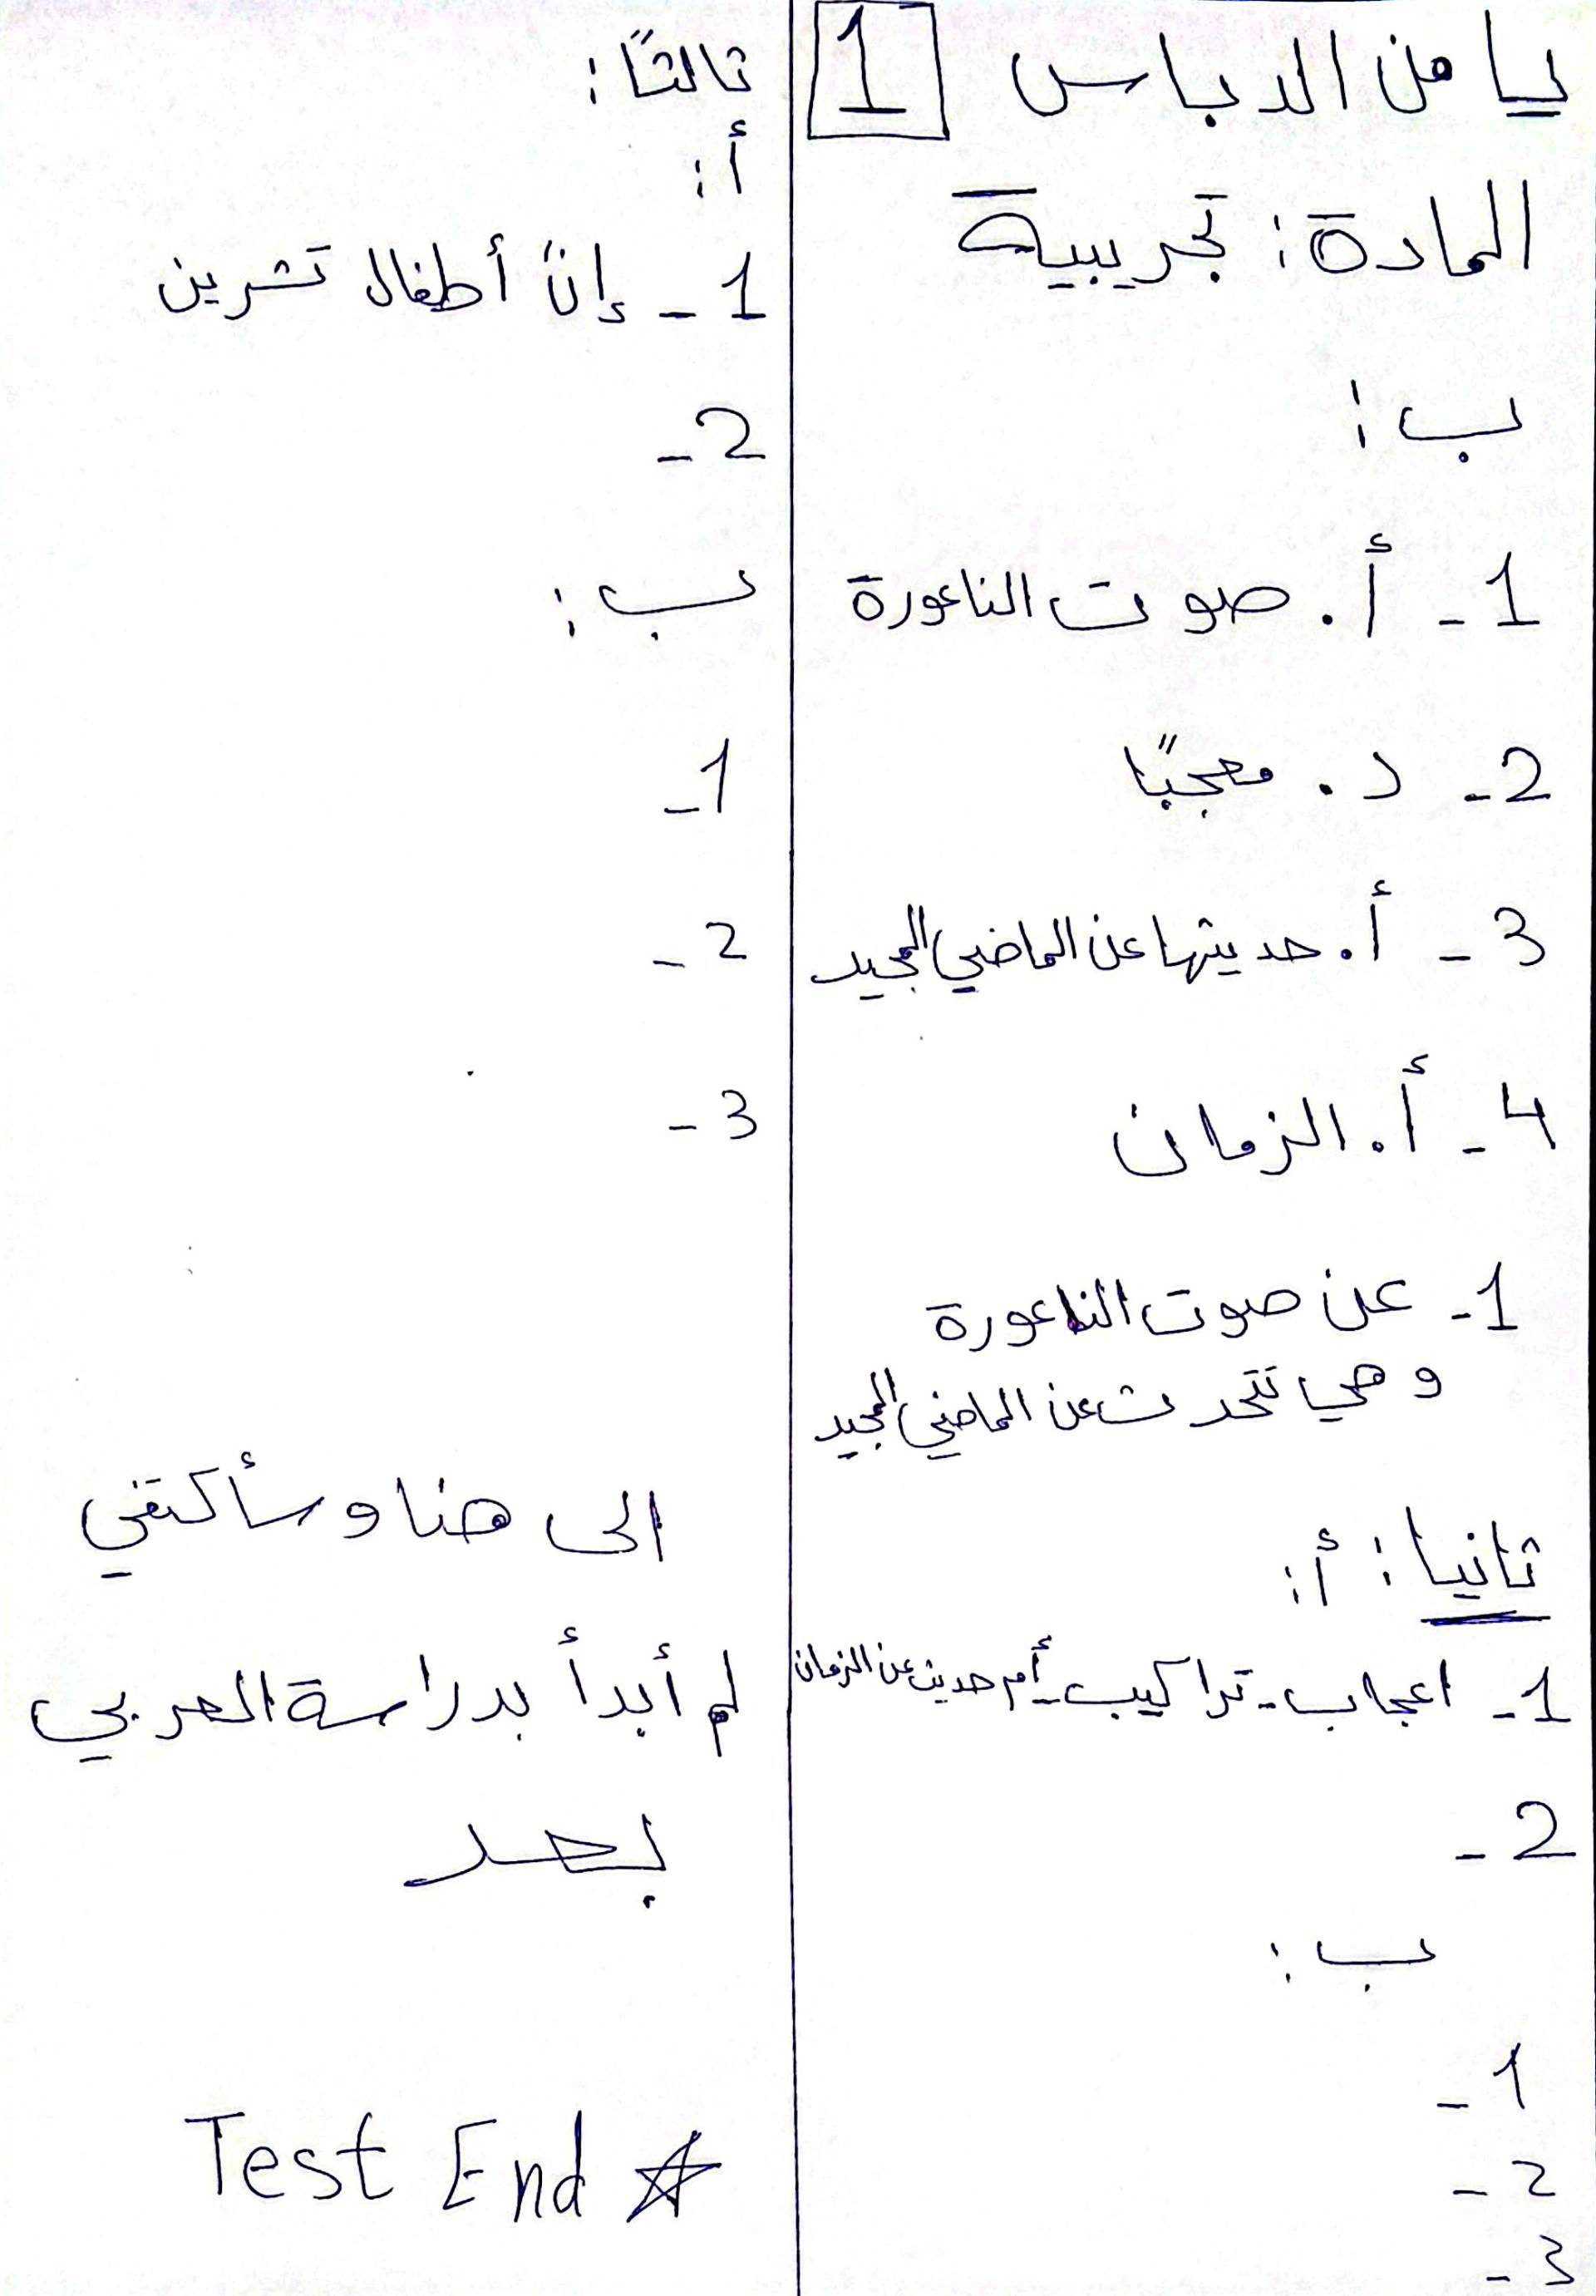 يا من الدباس 1
المادة: تجريبية
ب:
1- أ. صوت الناعورة
2- د. معجبًا
3- أ. حديثها عن الماضي المجيد
4- أ. الزمان
1- عن صوت الناعورة
و هي تتحدث عن الماضي المجيد
ثانيا: أ:
1- اعجاب - تراكيب - أم حديث عن الزمان
2-
ب:
1-
2-
3-
ثالثًا:
أ:
1- إنّ أطفال تشرين
2-
ب:
1-
2-
3-
الى هنا وسأكتفي
لم أبدأ بدراسة العربي
بعد
Test End ☆